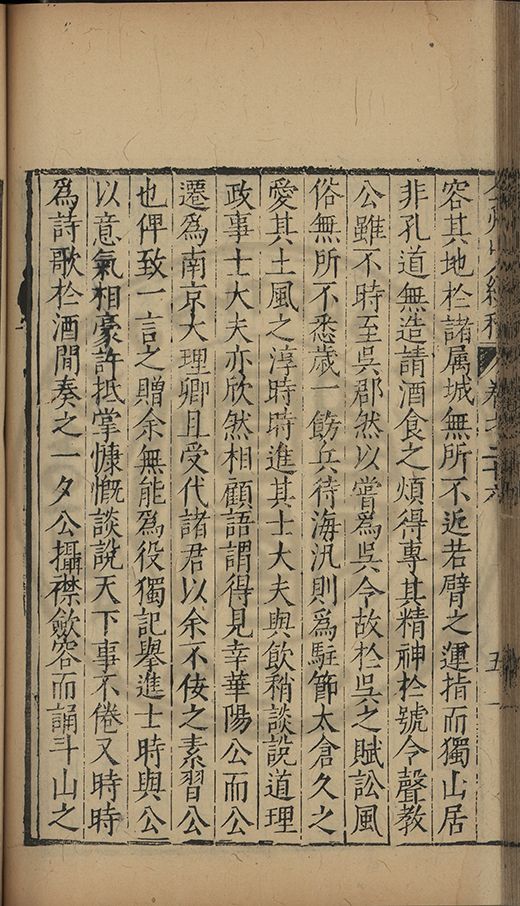 容其地於諸属城無所不近若臂之運指而獨山居
非孔道無造請酒食之煩得專其精神於號令聲教
公雖不時至吳郡然以嘗爲吳令故於吳之賦訟風
俗無所不悉歲一飭兵待海汛則爲駐節太倉久之
愛其土風之淳時時進其士大夫與飲稍談說道理
政事士大夫亦欣然相顧語謂得見幸華陽公而公
遷爲南京大理卿且受代諸君以余不佞之素習公
也俾致一言之贈余無能爲役獨記舉進士時與公
以意氣相豪許抵掌慷慨談說天下事不倦又時時
爲詩歌於酒間奏之一夕公攝襟歛容而誦斗山之